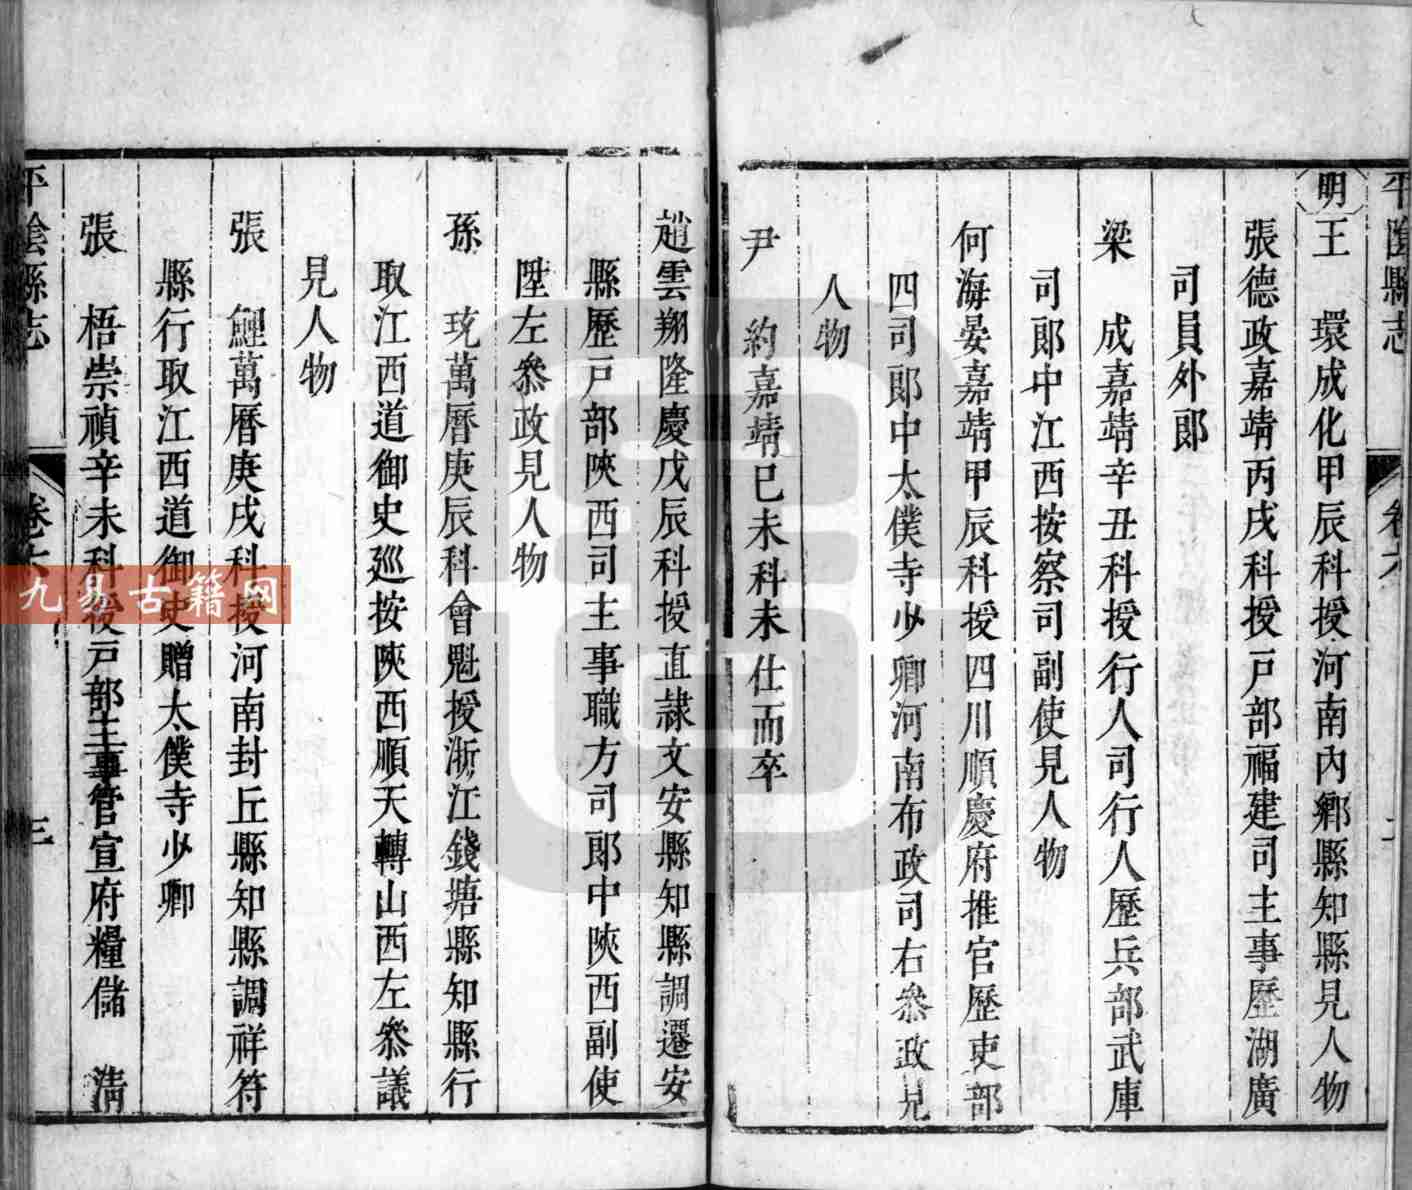 平陰縣志
卷六
二
明 王 環成化甲辰科授河南內鄉縣知縣見人物
張德政嘉靖丙戌科授戸部福建司主事歷湖廣
司員外郎
梁 成嘉靖辛丑科授行人司行人歷兵部武庫
司郎中江西按察司副使見人物
何海晏嘉靖甲辰科授四川順慶府推官歷吏部
四司郎中太僕寺少卿河南布政司右叅政見
人物
尹 約嘉靖已未科未仕而卒
趙雲翔隆慶戊辰科授直隷文安縣知縣調遷安
縣歷戸部陝西司主事職方司郎中陝西副使
陞左叅政見人物
孫 玧萬曆庚辰科會魁授浙江錢塘縣知縣行
取江西道御史廵按陝西順天轉山西左叅議
見人物
張 鯉萬曆庚戌科授河南封丘縣知縣調祥符
縣行取江西道御史贈太僕寺少卿
張 梧崇禎辛未科後戸部主事管宣府糧儲 清
平陰縣志
卷六
三
九易古籍网